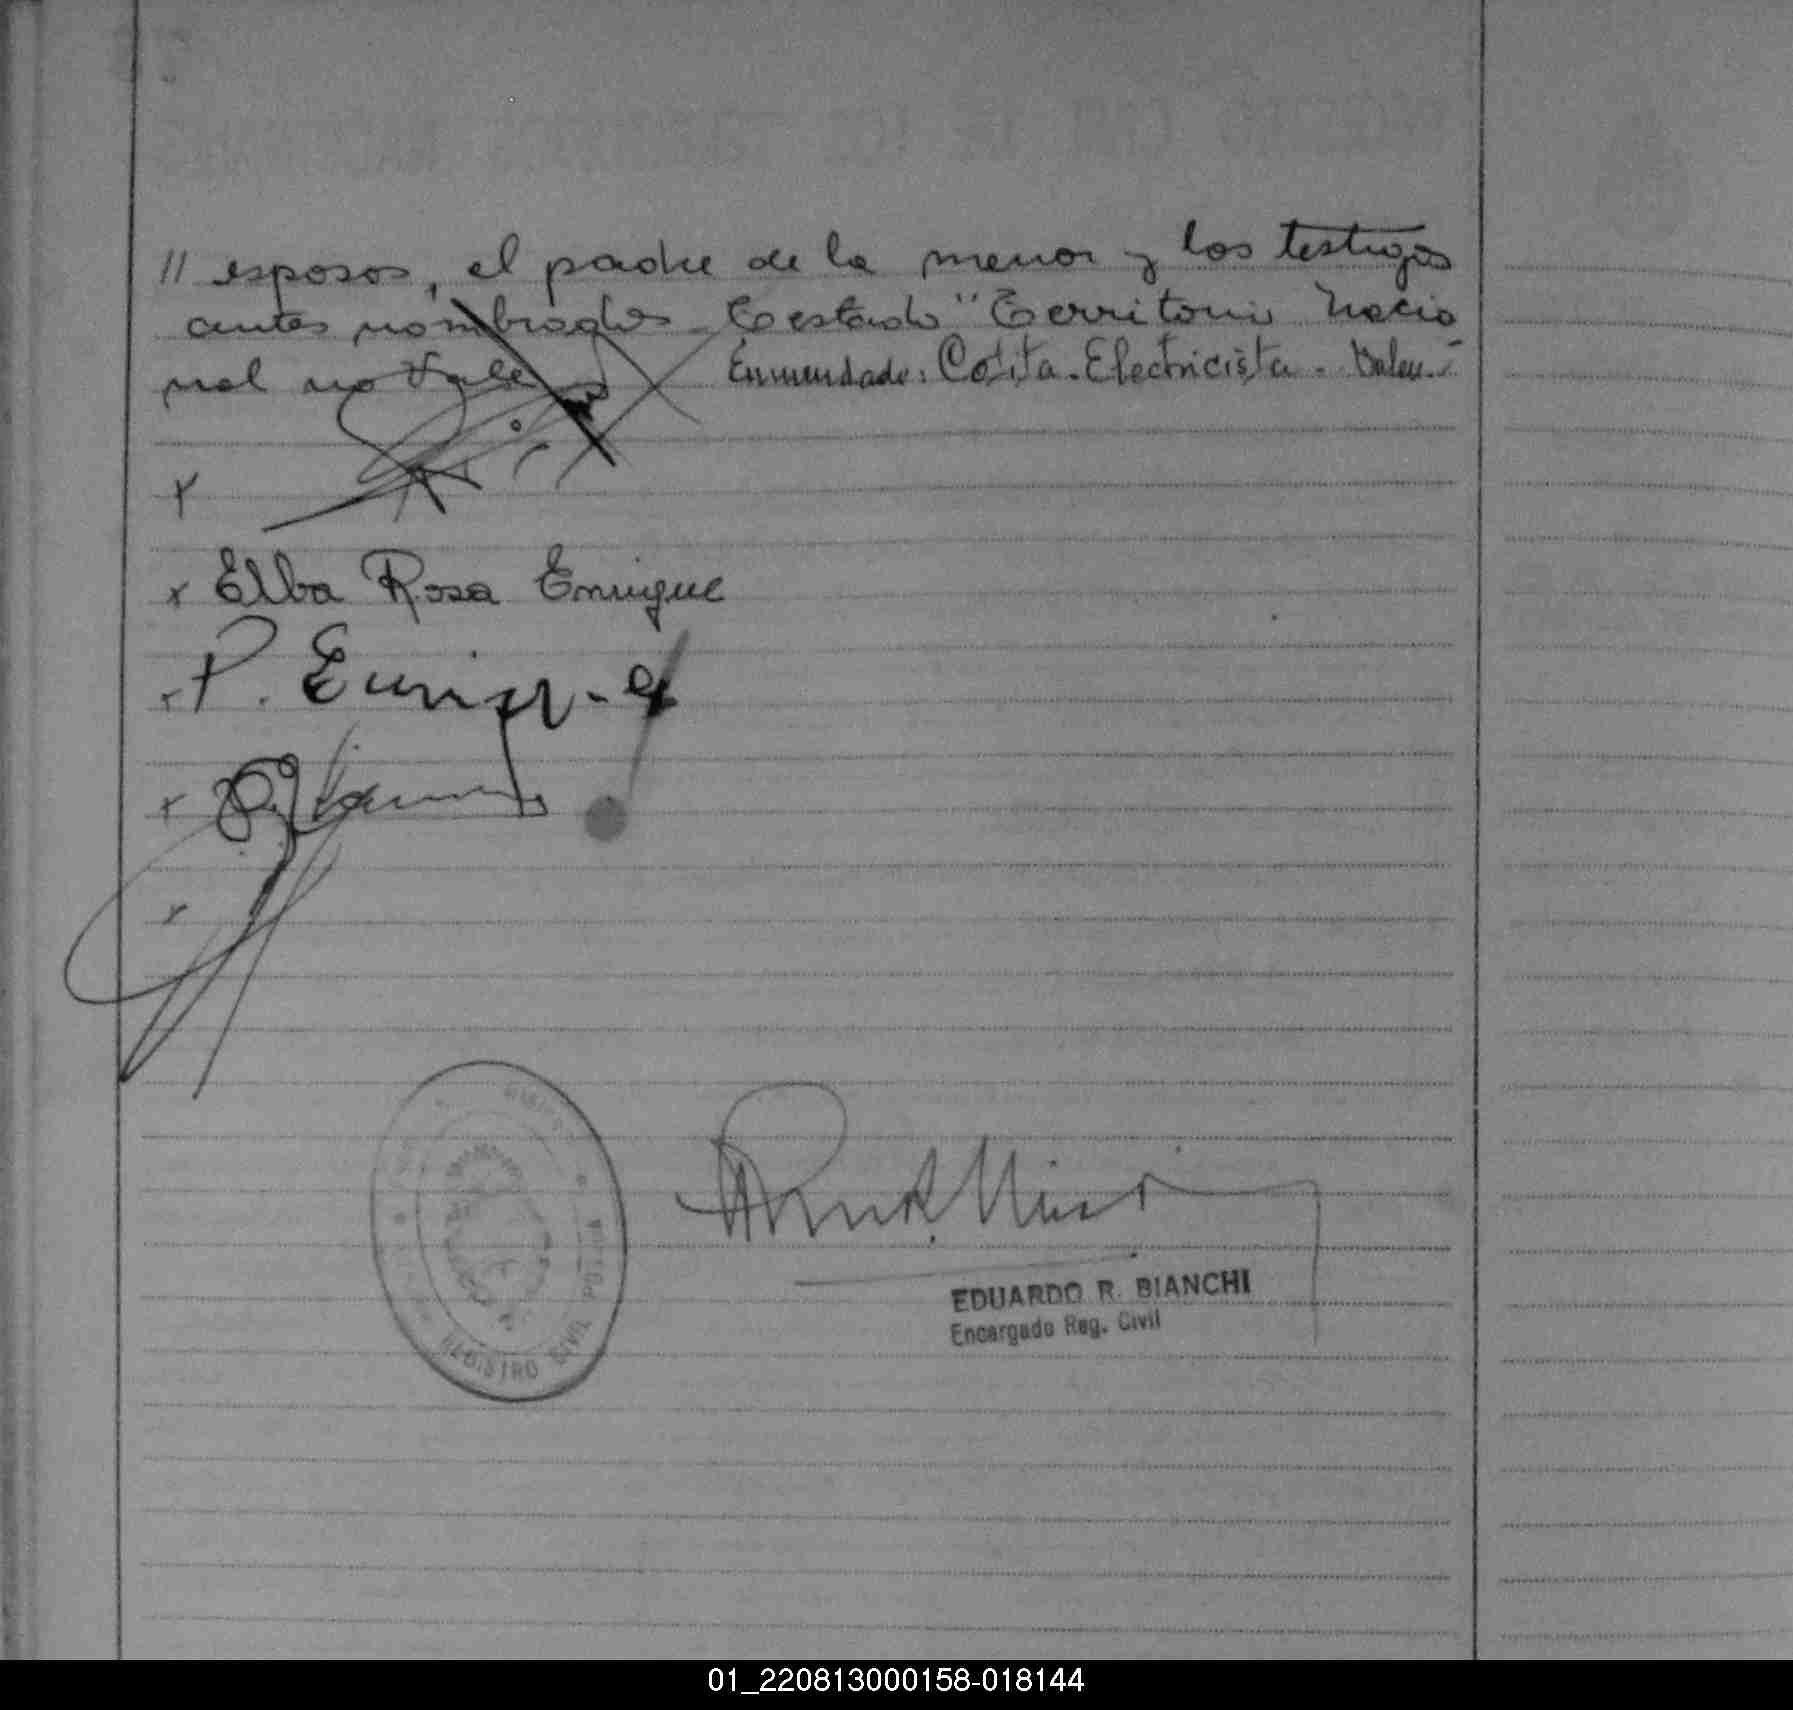 // esposos, el padre de la menor y los testigos
antes nombrados. Testado "Territorio Nacio
nal no vale Enmendado: Costa. Electricista. Valen.-
x
x Elba Rosa Enrique
x P. Enrique
x
x
REGISTRO CIVIL
EDUARDO R. BIANCHI
Encargado Reg. Civil
01_220813000158-018144